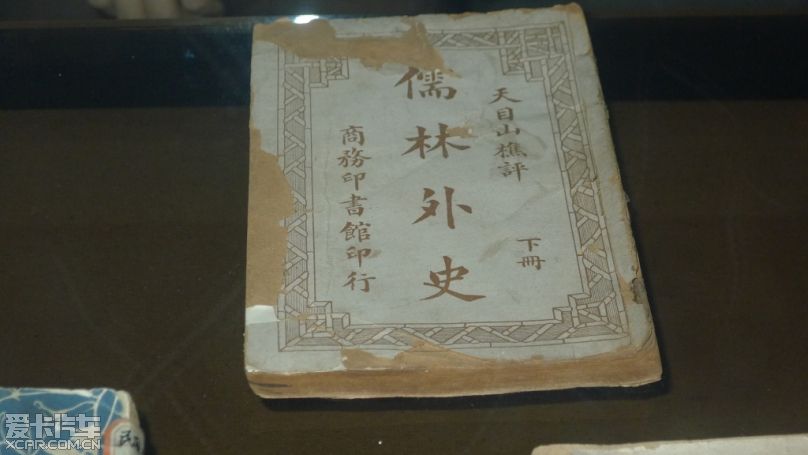 天目山樵評
下冊
儒林外史
商務印書館印行
民
爱卡汽车
XCAR.COM.CN